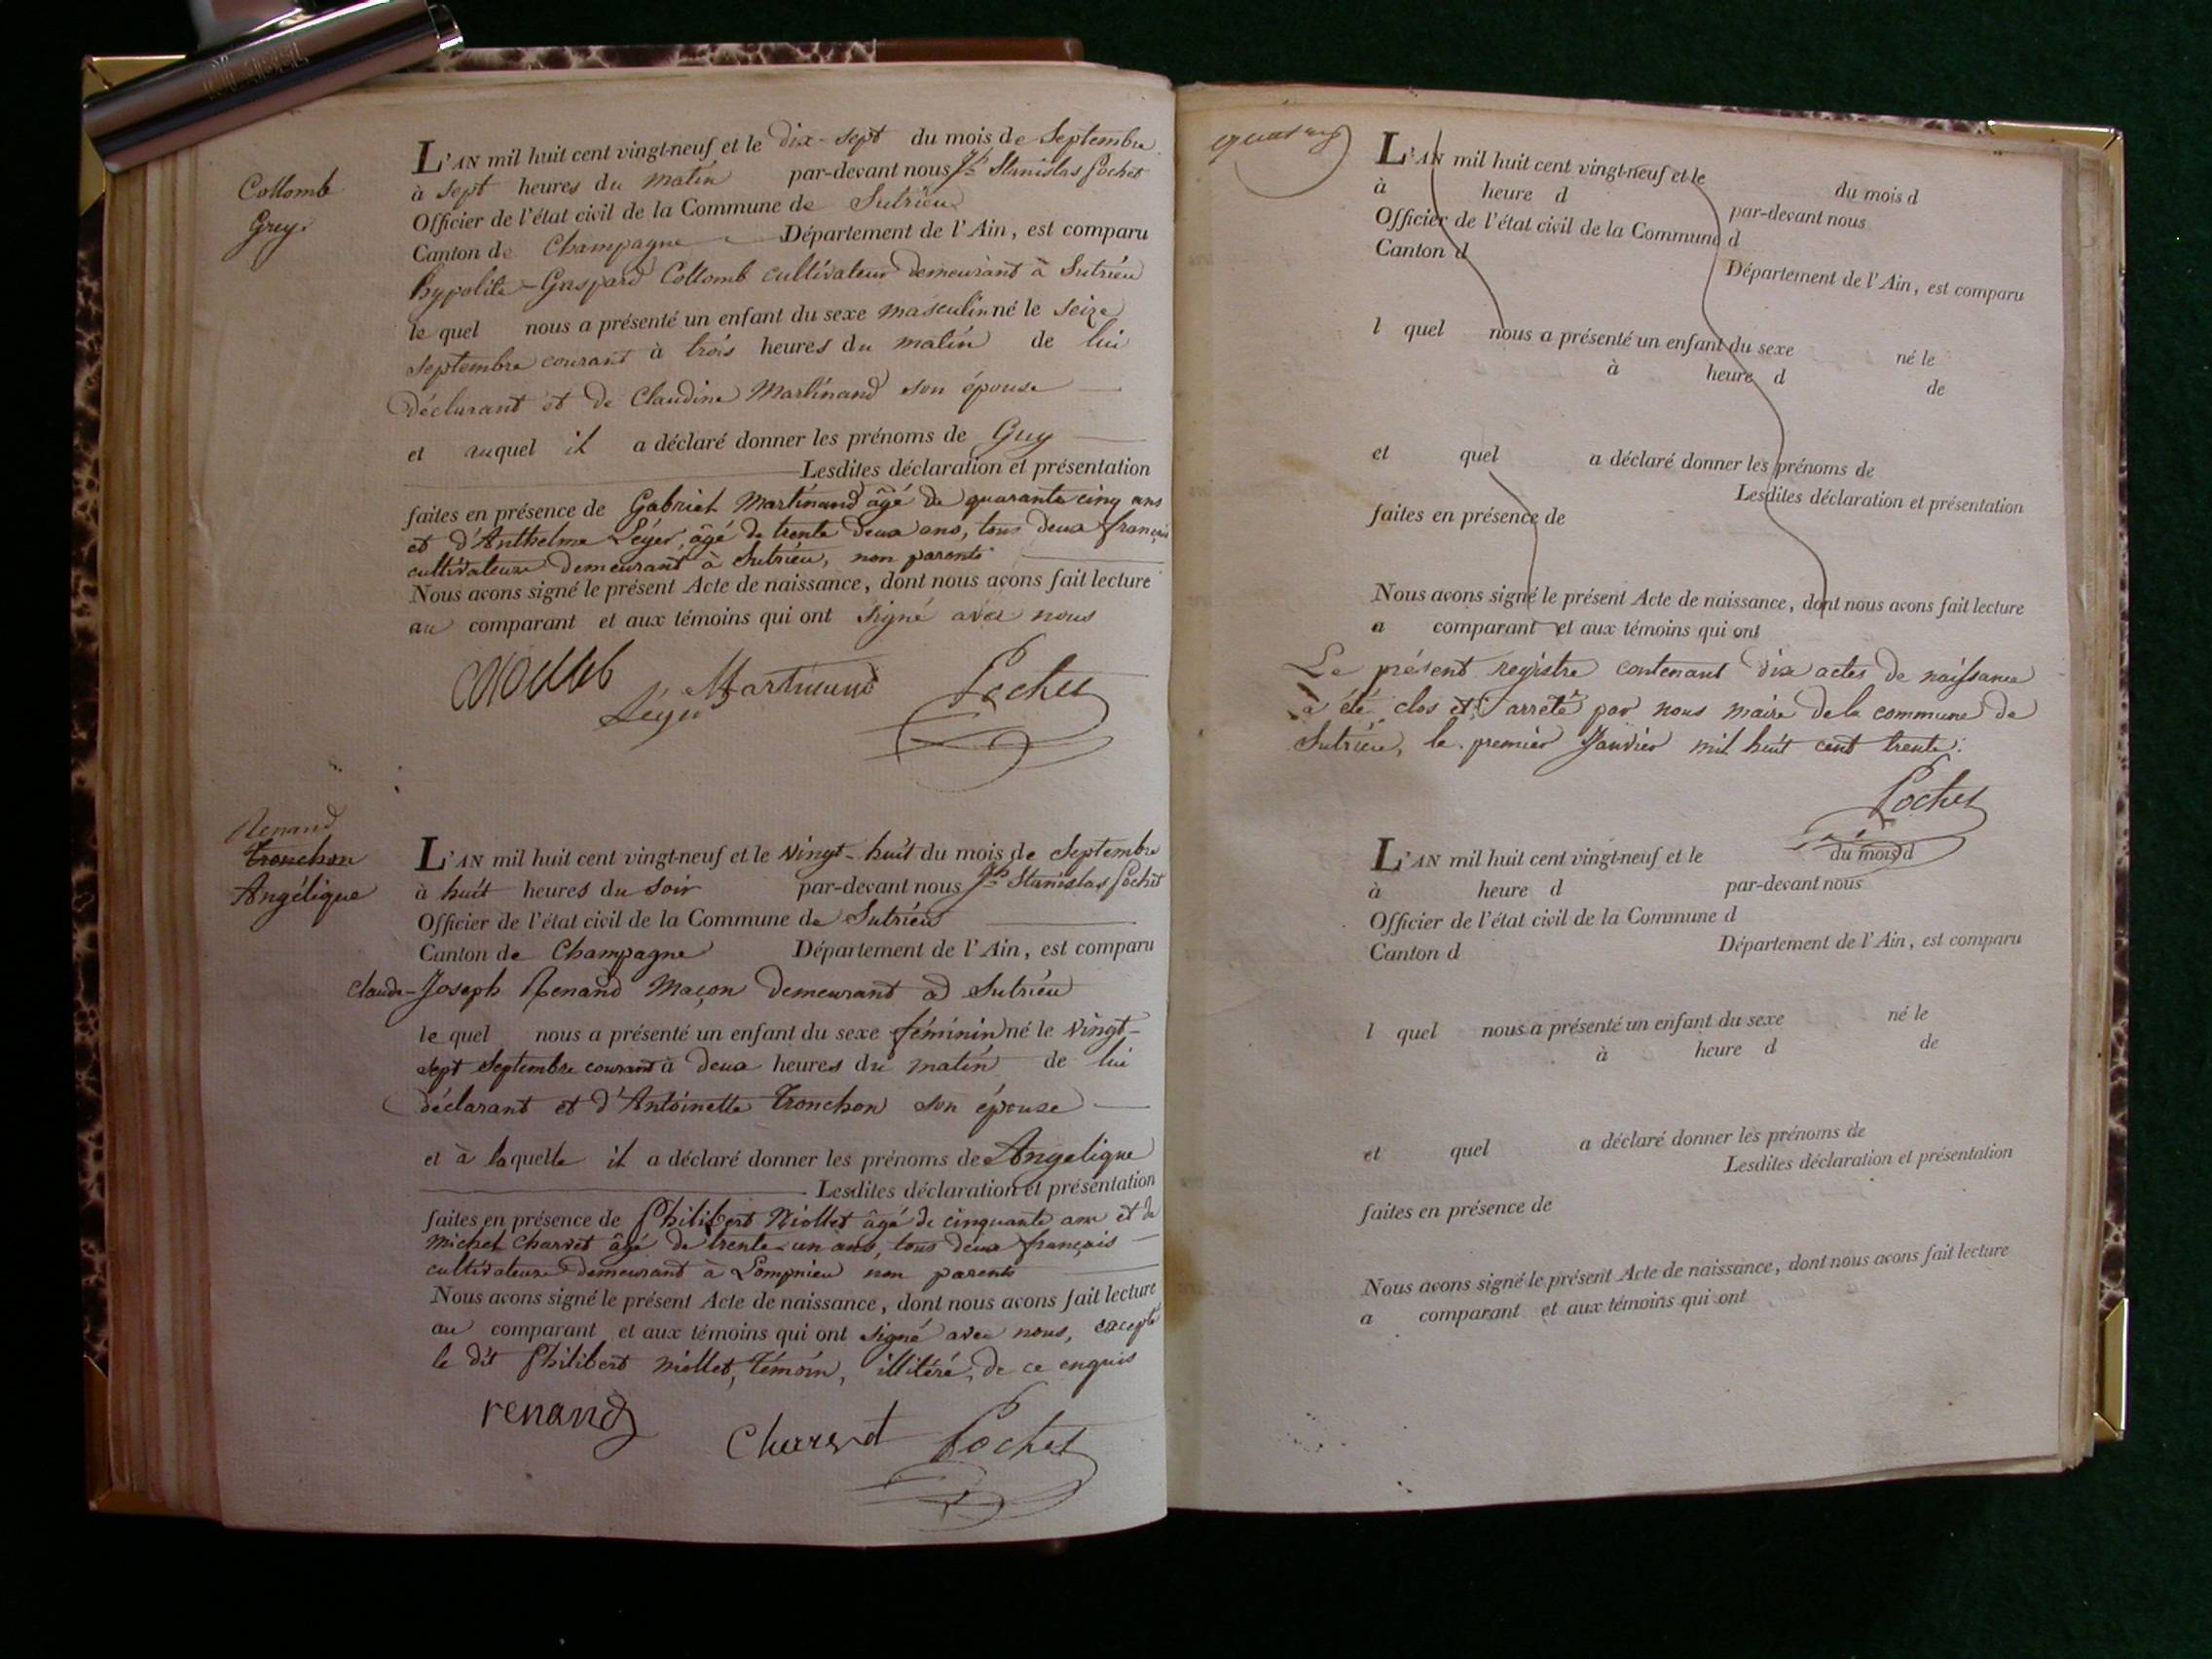 Collomb
Guy.
L'AN mil huit cent vingt-neuf et le dix-sept du mois de Septembre
à sept heures du matin par-devant nous Jh Stanislas Lochet
Officier de l'état civil de la Commune de Sutrieu
Canton de Champagne Département de l'Ain, est comparu
hypolite-Gaspard Collomb cultivateur demeurant à Sutrieu
le quel nous a présenté un enfant du sexe masculin né le seize
septembre courant à trois heures du matin de lui
déclarant et de Claudine Martinand son épouse
et auquel il a déclaré donner les prénoms de Guy
Lesdites déclaration et présentation
faites en présence de Gabriel Martinand âgé de quarante cinq ans
et d'Anthelme Léger, âgé de trente deux ans, tous deux français
cultivateurs demeurant à Sutrieu, non parents
Nous avons signé le présent Acte de naissance, dont nous avons fait lecture
au comparant et aux témoins qui ont signé avec nous
Martinand Lochet
Léger
Renand
Tronchon
Angélique
L'AN mil huit cent vingt-neuf et le vingt-huit du mois de Septembre
à huit heures du soir par-devant nous Jh Stanislas Lochet
Officier de l'état civil de la Commune de Sutrieu
Canton de Champagne Département de l'Ain, est comparu
Claude-Joseph Renand Maçon demeurant à Sutrieu
le quel nous a présenté un enfant du sexe féminin né le vingt-
sept septembre courant à deux heures du matin de lui
déclarant et d'Antoinette Tronchon son épouse
et à laquelle il a déclaré donner les prénoms de Angelique
Lesdites déclaration et présentation
faites en présence de Philibert Niollet âgé de cinquante ans et de
Michel Charvet âgé de trente-un ans, tous deux français
cultivateurs demeurant à Lompnieu non parents
Nous avons signé le présent Acte de naissance, dont nous avons fait lecture
au comparant et aux témoins qui ont signé avec nous, excepté
le dit Philibert Niollet, témoin, illitéré, de ce enquis
renand
Charvet Lochet
L'AN mil huit cent vingt-neuf et le du mois d
à heure d par-devant nous
Officier de l'état civil de la Commune d
Canton d Département de l'Ain, est comparu
l quel nous a présenté un enfant du sexe né le
à heure d de
et quel a déclaré donner les prénoms de
Lesdites déclaration et présentation
faites en présence de
Nous avons signé le présent Acte de naissance, dont nous avons fait lecture
a comparant et aux témoins qui ont
Le présent registre contenant dix actes de naissance
a été clos et arreté par nous maire de la commune de
Sutrieu, le premier Janvier mil huit cent trente.
Lochet
L'AN mil huit cent vingt-neuf et le du mois d
à heure d par-devant nous
Officier de l'état civil de la Commune d
Canton d Département de l'Ain, est comparu
l quel nous a présenté un enfant du sexe né le
à heure d de
et quel a déclaré donner les prénoms de
Lesdites déclaration et présentation
faites en présence de
Nous avons signé le présent Acte de naissance, dont nous avons fait lecture
a comparant et aux témoins qui ont